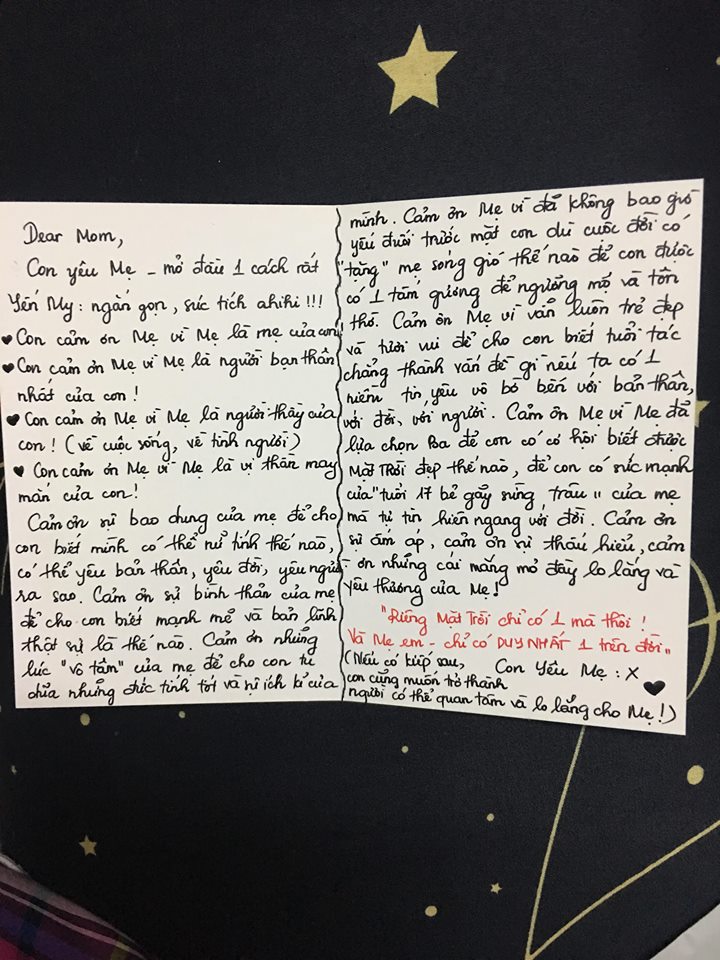 Dear Mom,
Con yêu Mẹ - mở đầu 1 cách rất
Yến My : ngắn gọn, súc tích ahihi !!!
♥ Con cảm ơn Mẹ vì Mẹ là mẹ của con!
♥ Con cảm ơn Mẹ vì Mẹ là người bạn thân
nhất của con !
♥ Con cảm ơn Mẹ vì Mẹ là người thầy của
con ! (về cuộc sống, về tình người)
♥ Con cảm ơn Mẹ vì Mẹ là vị thần may
mắn của con!
Cảm ơn sự bao dung của mẹ để cho
con biết mình có thể nữ tính thế nào,
có thể yêu bản thân, yêu đời, yêu người
ra sao. Cảm ơn sự bình thản của mẹ
để cho con biết mạnh mẽ và bản lĩnh
thật sự là thế nào. Cảm ơn những
lúc "vô tâm" của mẹ để cho con từ
chĩa những đức tính tốt và sự ích kỉ của
mình. Cảm ơn Mẹ vì đã không bao giờ
yếu đuối trước mặt con dù cuộc đời có
"tặng" mẹ sóng gió thế nào để con được
có 1 tấm gương để ngưỡng mộ và tôn
thờ. Cảm ơn Mẹ vì vẫn luôn trẻ đẹp
và tươi vui để cho con biết tuổi tác
chẳng thành vấn đề gì nếu ta có 1
niềm tin, yêu vô bờ bến với bản thân,
với đời, với người. Cảm ơn Mẹ vì Mẹ đã
lựa chọn Ba để con có cơ hội biết được
Mặt Trời đẹp thế nào, để con có sức mạnh
của "tuổi 17 bẻ gãy sừng trâu" của mẹ
mà tự tin hiên ngang với đời. Cảm ơn
sự ấm áp, cảm ơn sự thấu hiểu, cảm
ơn những cái mắng mỏ đầy lo lắng và
yêu thương của Mẹ!
"Riêng Mặt Trời chỉ có 1 mà thôi !
Và Mẹ em - chỉ có DUY NHẤT 1 trên đời"
(Nếu có kiếp sau, Con Yêu Mẹ : X
con cũng muốn trở thành
người có thể quan tâm và lo lắng cho Mẹ !) ♥